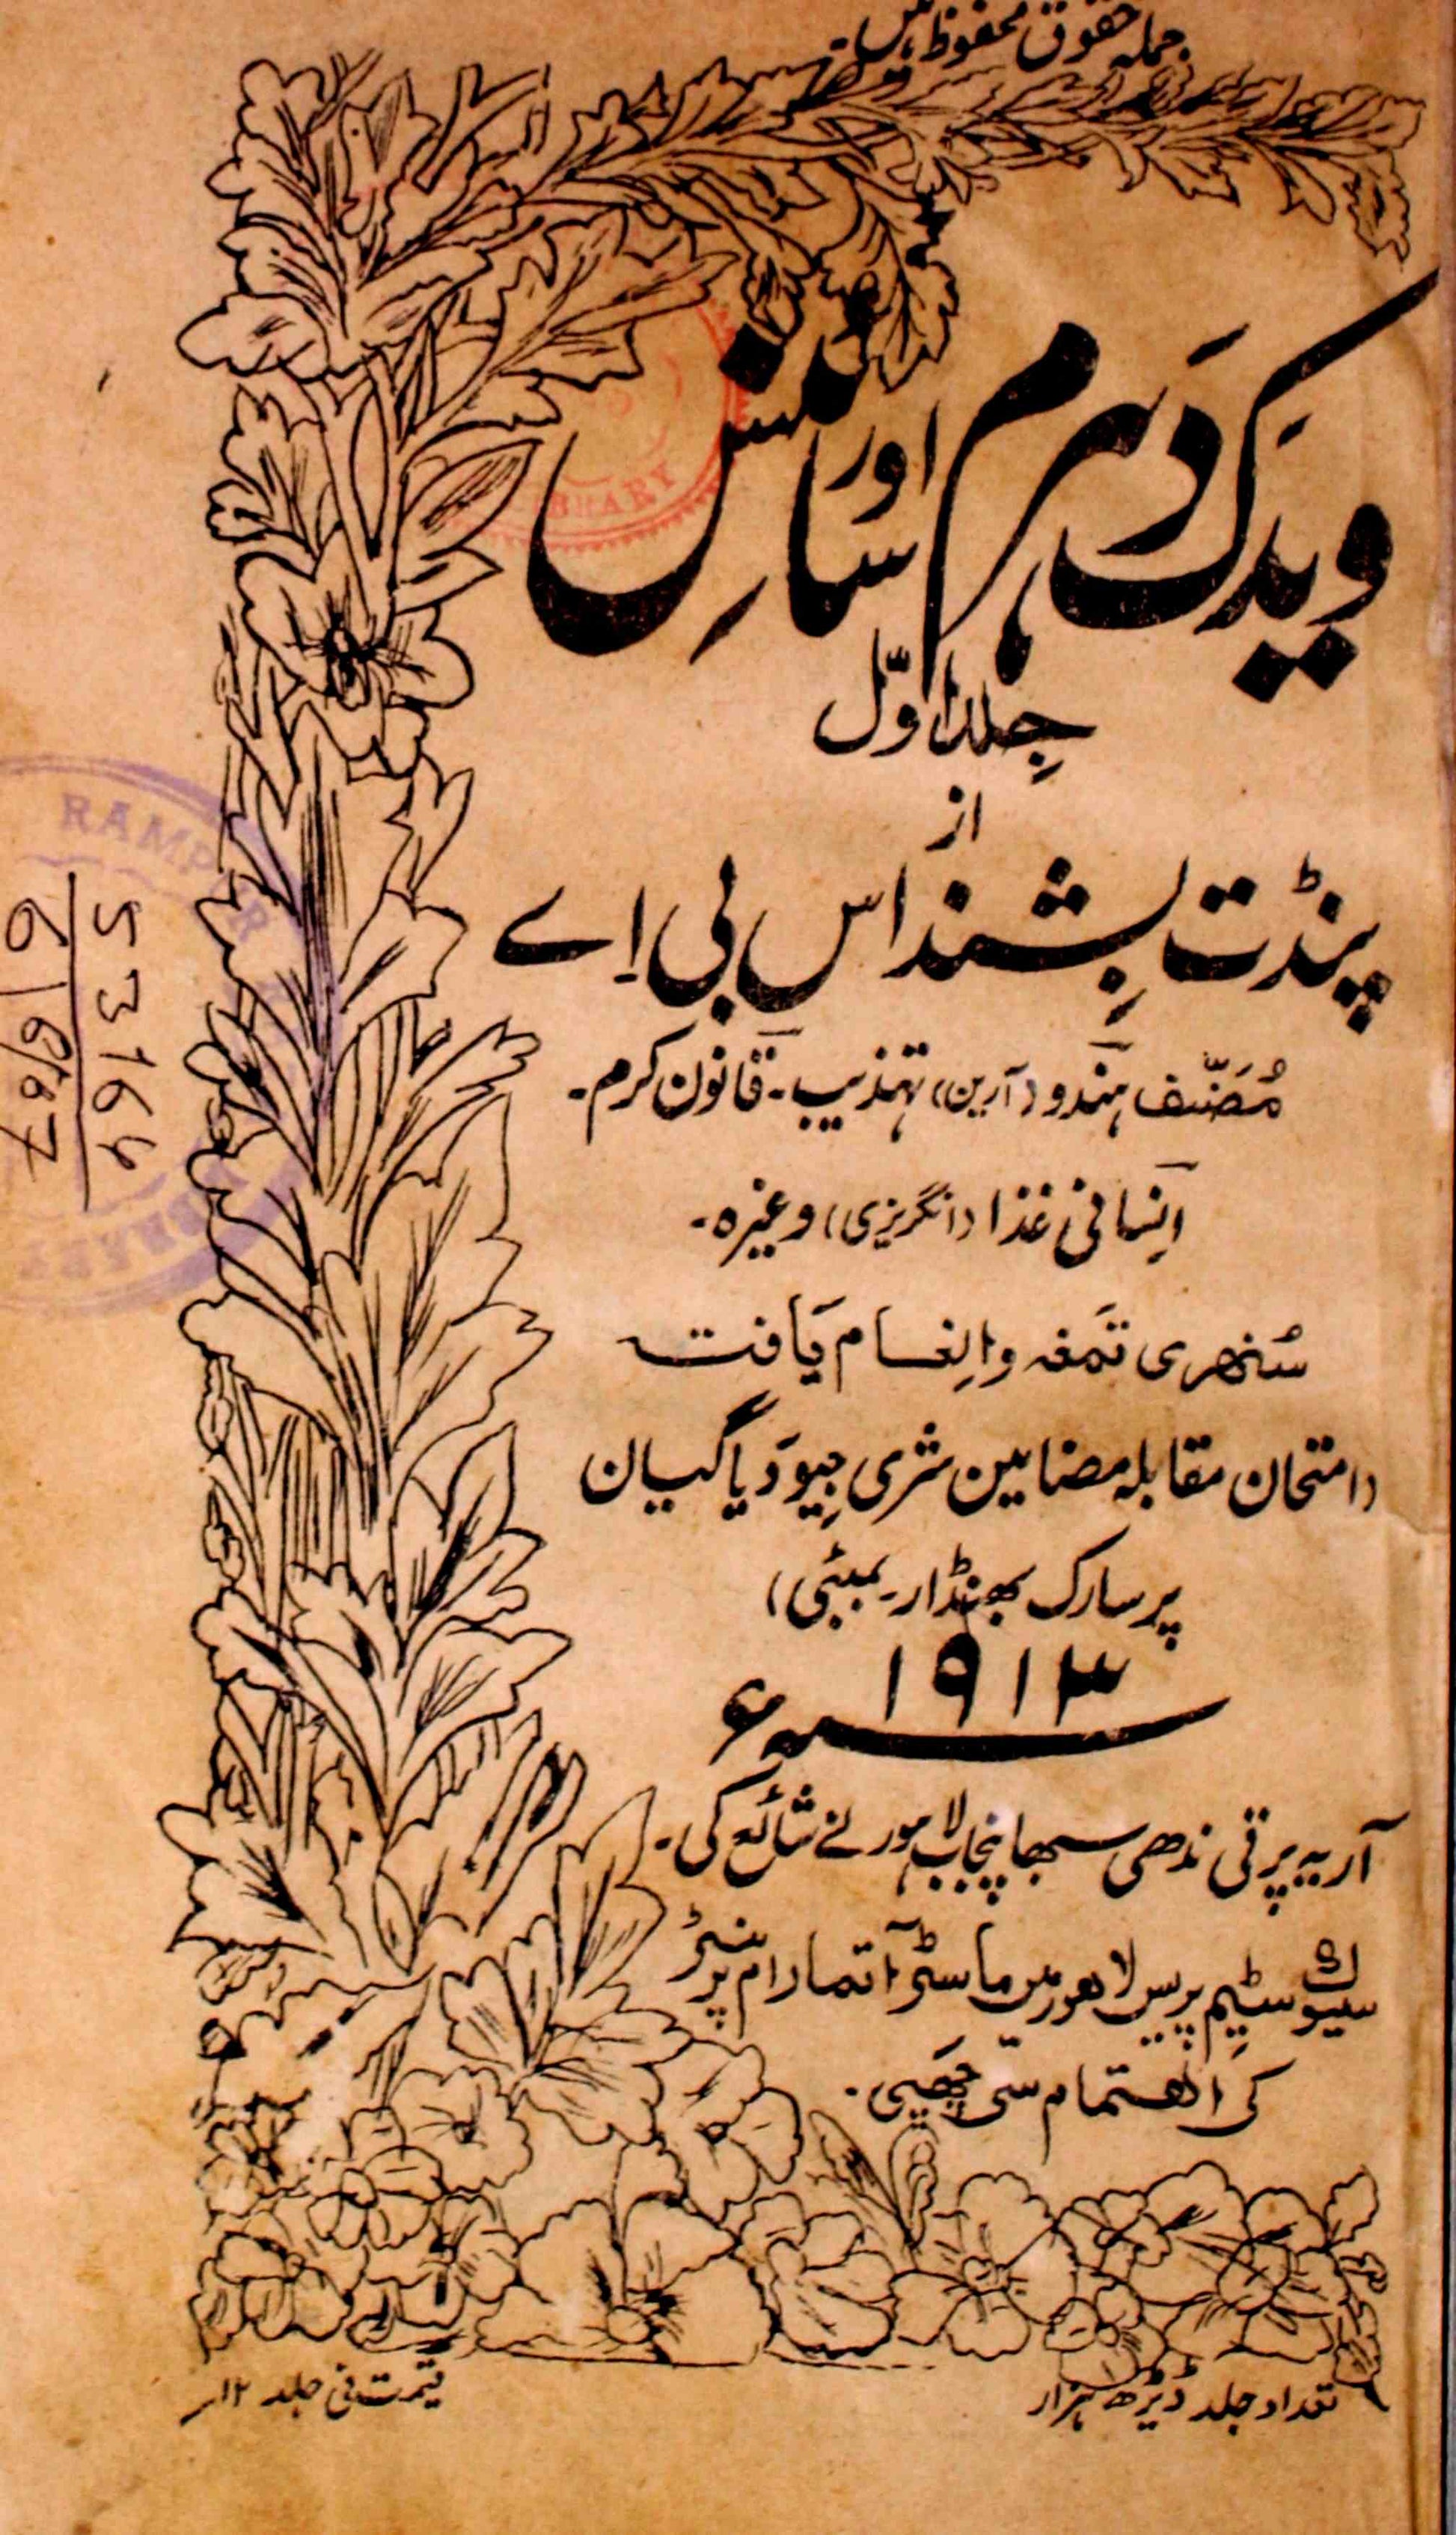 جملہ حقوق محفوظ ہیں۔
ویدک دہرم اور سائنس
جلد اوّل
از
پنڈت بشنداس بی اے
مُصَنّف ہندو (آرین) تہذیب۔ قانون کرم۔
اِنسانی غذا (انگریزی) وغیرہ۔
سُنھری تمغہ واِنعام یَافتہ
(امتحان مقابلہ مضامین شری جیودَیا گیان
پرسارک بھنڈار۔ بمبئی)
۱۹۱۳ء
آریہ پرتی ندھی سبھا پنجاب لاہور نے شائع کی۔
سیوک سٹیم پریس لاھور میں ماسٹر آتمارام پرنٹر
کی اھتمام سی چھپی۔
تعداد جلد ڈیڑھ ہزار
قیمت فی جلد ۱۲؍
RAMPUR
LIBRARY
53164